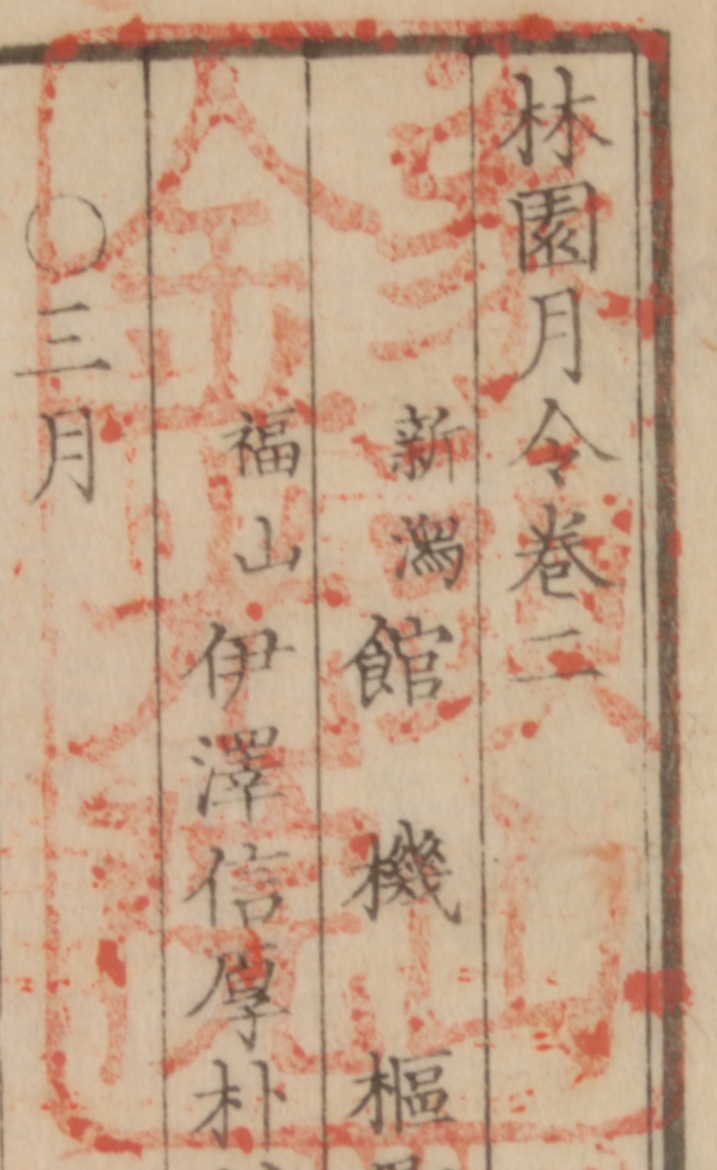 林園月令巻二
新潟館機樞
福山伊澤信厚朴
〇三月